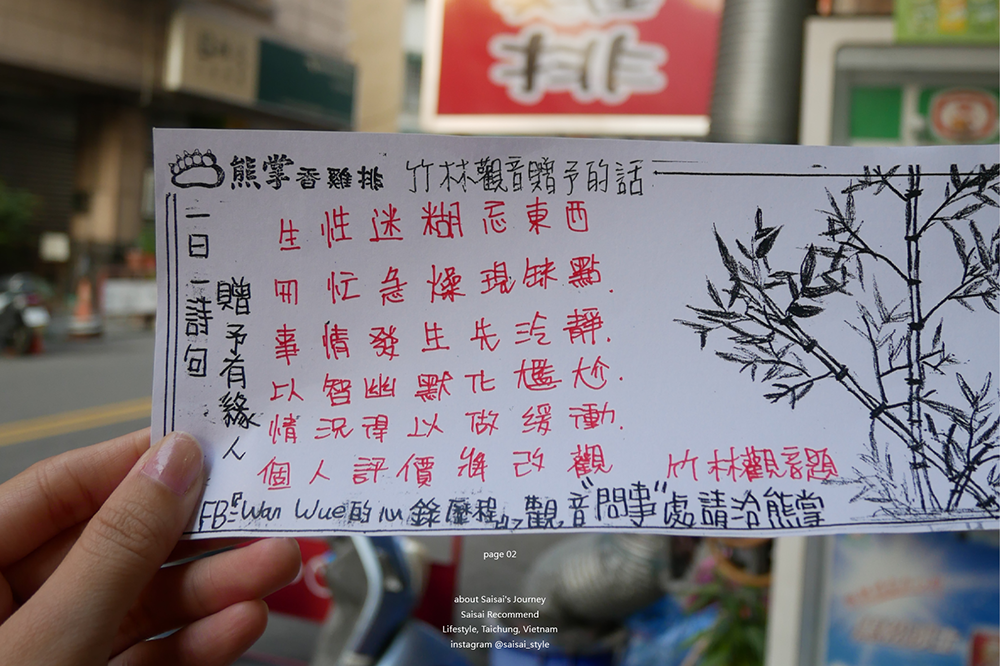 排
熊掌香雞排 竹林觀音贈予的話
一日一詩句
贈予有緣人
生性迷糊忘東西
毋忙急燥現缺點.
事情發生先冷靜.
以智幽默化尷尬.
情況得以做緩衝.
個人評價將改觀
竹林觀音題
FB="Wan Wue的心錄歷程 觀音"問事"處請洽熊掌
page 02
about Saisai's Journey
Saisai Recommend
Lifestyle, Taichung, Vietnam
instagram @saisai_style